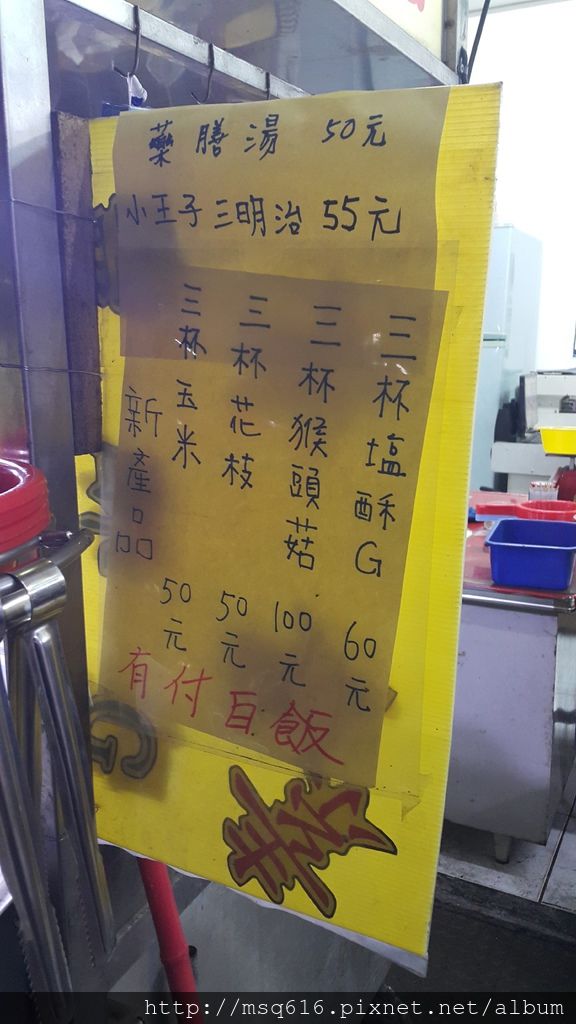 藥膳湯 50元
小王子三明治 55元
三杯塩酥G 60元
三杯猴頭菇 100元
三杯花枝 50元
三杯玉米 50元
新產品
有付白飯
素
G
http://msq616.pixnet.net/album